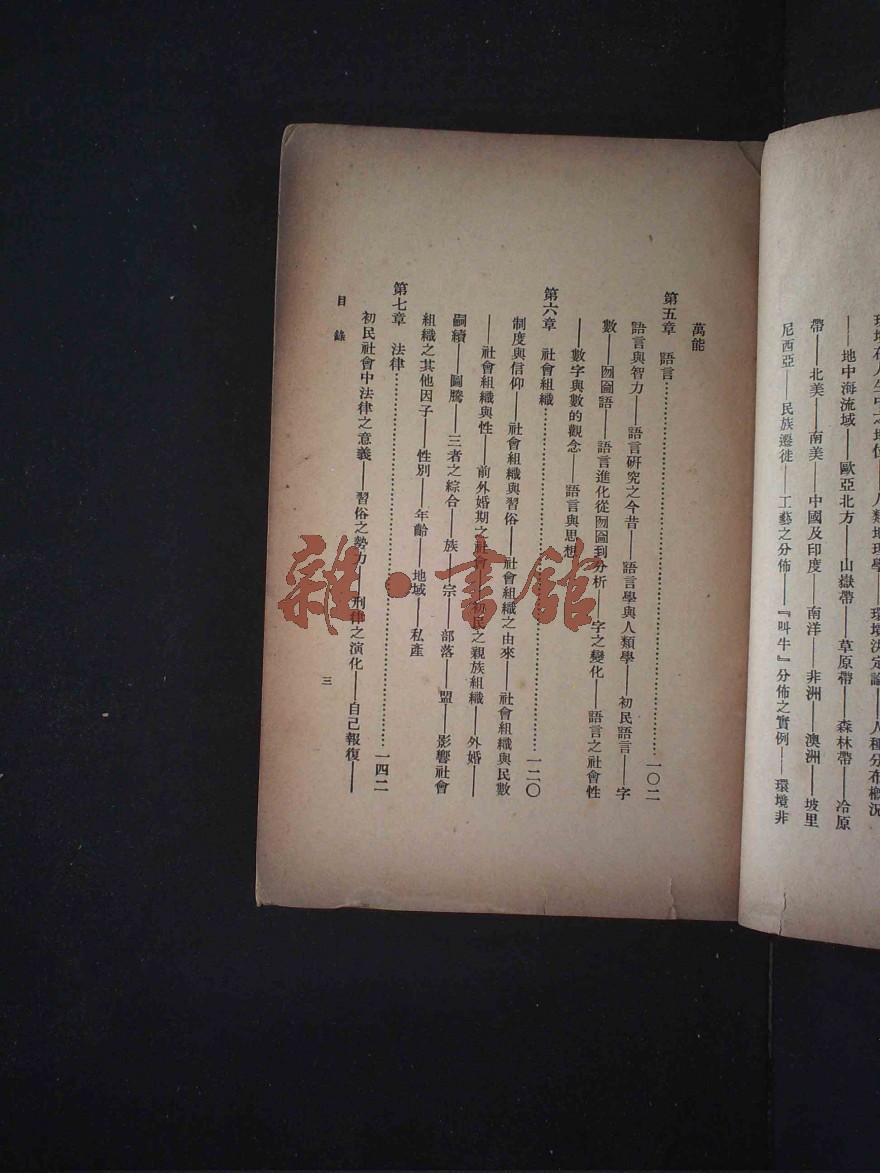 環境在人生中之地位——人類地理學——環境決定論——人種分布概況
——地中海流域——歐亞北方——山嶽帶——草原帶——森林帶——冷原
帶——北美——南美——中國及印度——南洋——非洲——澳洲——坡里
尼西亞——民族遷徙——工藝之分佈——『叫牛』分佈之實例——環境非
萬能
第五章　語言…………一〇二
語言與智力——語言研究之今昔——語言學與人類學——初民語言——字
數——囫圇語——語言進化從囫圇到分析——字之變化——語言之社會性
——數字與數的觀念——語言與思想
第六章　社會組織…………一二〇
制度與信仰——社會組織與習俗——社會組織之由來——社會組織與民數
——社會組織與性——前外婚期之社會——初民之親族組織——外婚——
嗣續——圖騰——三者之綜合——族——宗——部落——盟——影響社會
組織之其他因子——性別——年齡——地域——私產
第七章　法律…………一四二
初民社會中法律之意義——習俗之勢力——刑律之演化——自己報復——
目錄
三
雜·書館